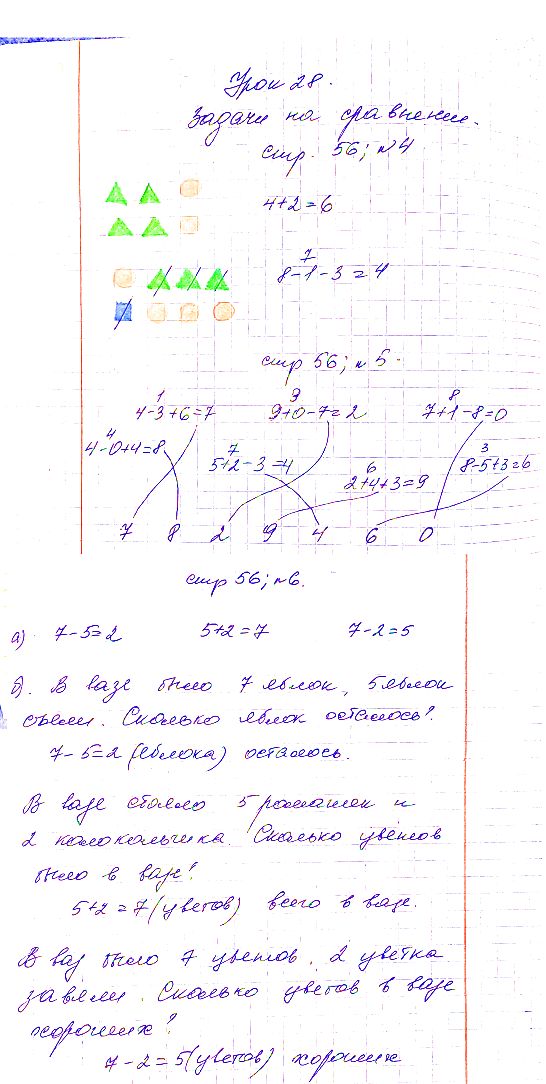 Урок 28.
Задачи на сравнение.
стр. 56; №4
4+2=6
7
8-1-3=4
стр 56; №5.
1 9 8
4-3+6=7 9+0-7=2 7+1-8=0
4 7 6 3
4-0+4=8 5+2-3=4 2+4+3=9 8-5+3=6
7 8 2 9 4 6 0
стр 56; №6.
а) 7-5=2 5+2=7 7-2=5
б). В вазе было 7 яблок, 5 яблок
съели. Сколько яблок осталось?
7-5=2 (яблока) осталось.
В вазе стояло 5 ромашек и
2 колокольчика. Сколько цветов
было в вазе?
5+2=7 (цветов) всего в вазе.
В ваз было 7 цветов. 2 цветка
завяли. Сколько цветов в вазе
хороших?
7-2=5 (цветов) хороших